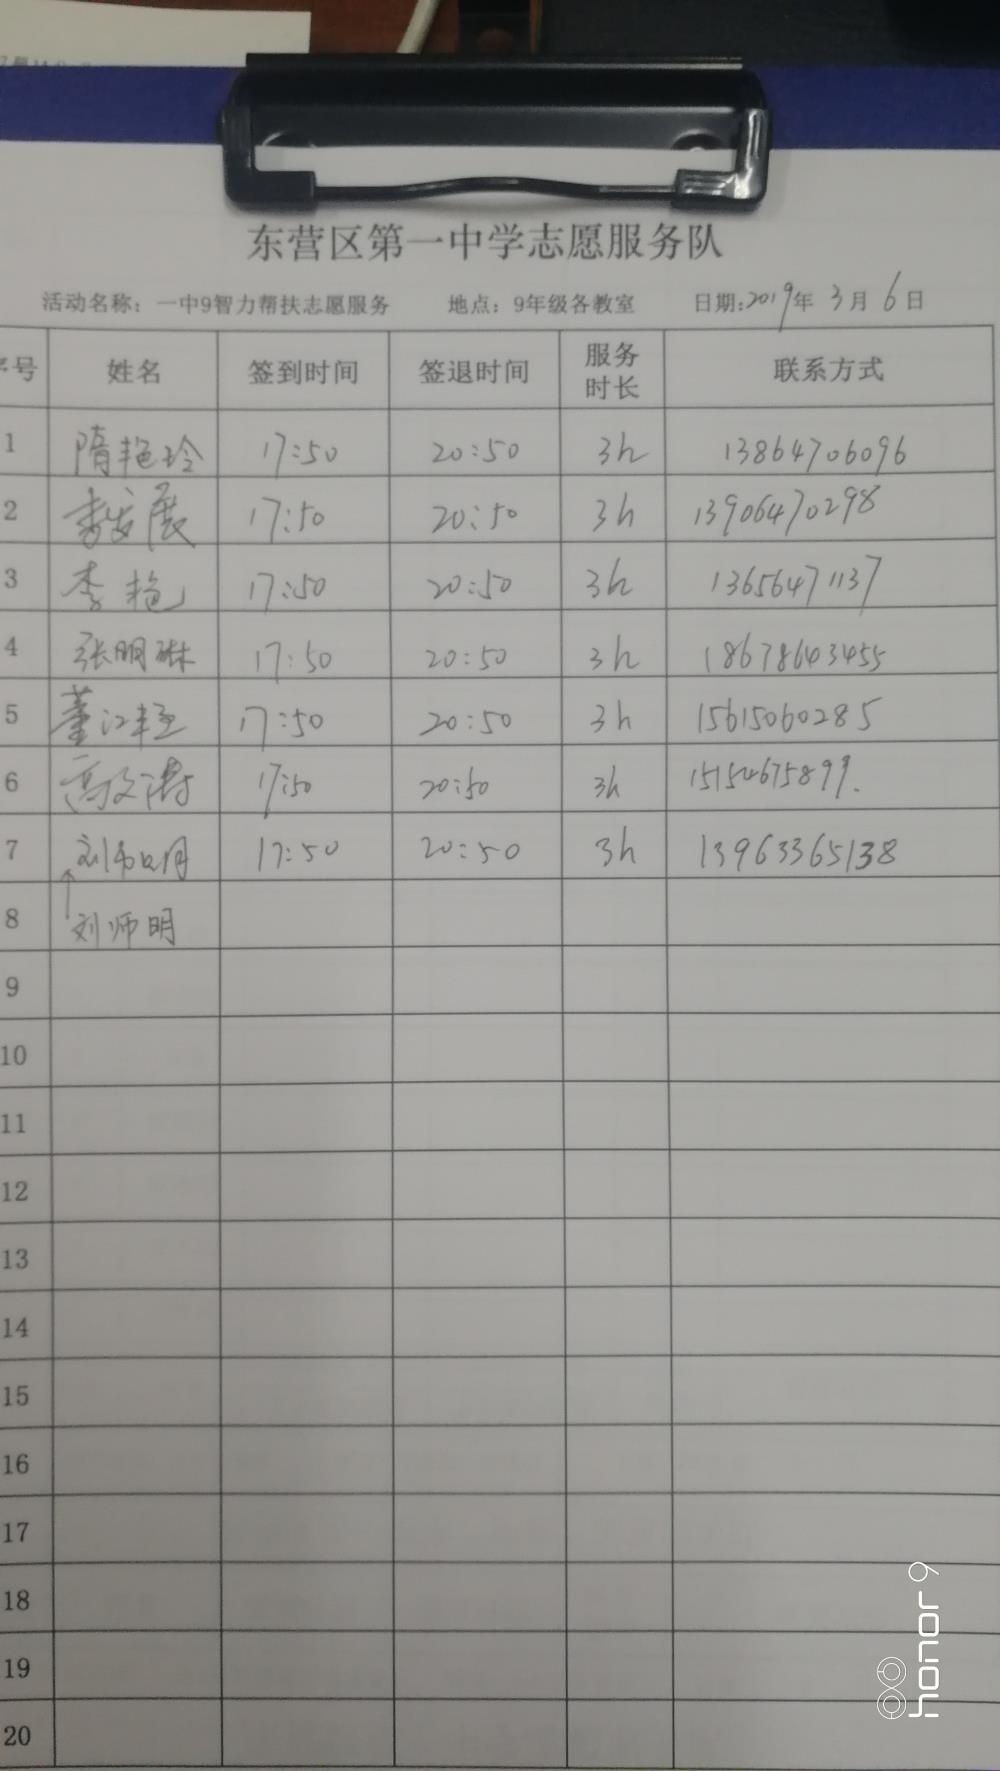 东营区第一中学志愿服务队
活动名称：一中9智力帮扶志愿服务 地点：9年级各教室 日期:2019年 3月 6日
序号 姓名 签到时间 签退时间 服务时长 联系方式
1 隋艳玲 17:50 20:50 3h 13864706096
2 李发展 17:50 20:50 3h 13906470298
3 李艳 17:50 20:50 3h 13656471137
4 张明琳 17:50 20:50 3h 18678643455
5 董江 17:50 20:50 3h 15615060285
6 高文涛 17:50 20:50 3h 15154675899.
7 刘师明 17:50 20:50 3h 13963365138
8 刘师明
9
10
11
12
13
14
15
16
17
18
19
20
honor 9